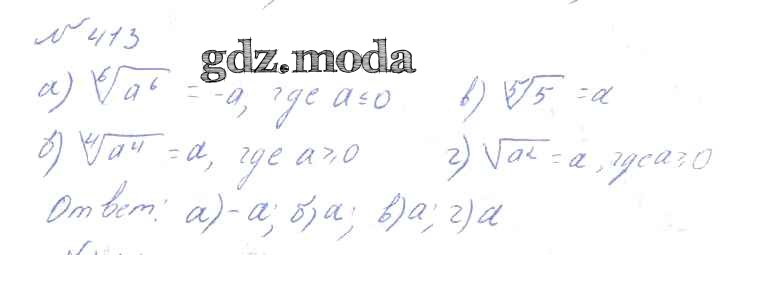 №413
gdz.moda
а) ⁶√a⁶ = -a, где a≤0 в) ⁵√5 = a
б) ⁴√a⁴ = a, где a≥0 г) √a² = a, где a≥0
Ответ: а) -a; б) a; в) a; г) a